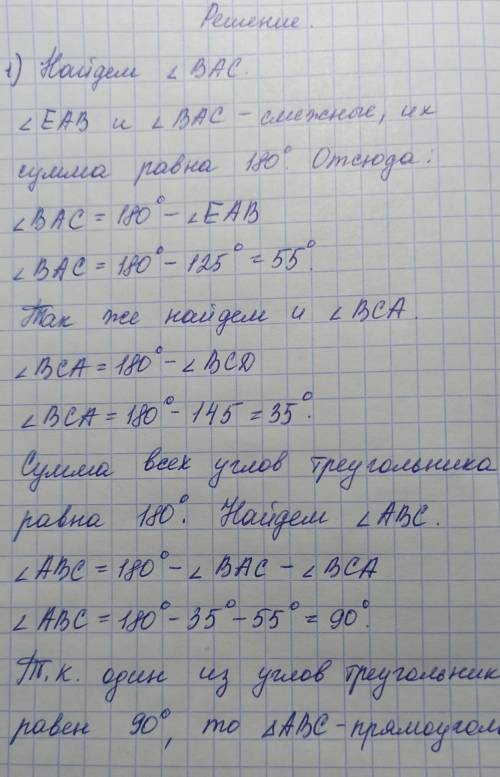 Решение.
1) Найдем ∠BAC.
∠EAB и ∠BAC - смежные, их
сумма равна 180°. Отсюда:
∠BAC = 180° - ∠EAB
∠BAC = 180° - 125° = 55°.
Так же найдем и ∠BCA.
∠BCA = 180° - ∠BCD
∠BCA = 180° - 145 = 35°.
Сумма всех углов треугольника
равна 180°. Найдем ∠ABC.
∠ABC = 180° - ∠BAC - ∠BCA
∠ABC = 180° - 35° - 55° = 90°.
Т.к. один из углов треугольник
равен 90°, то △ABC - прямоугол